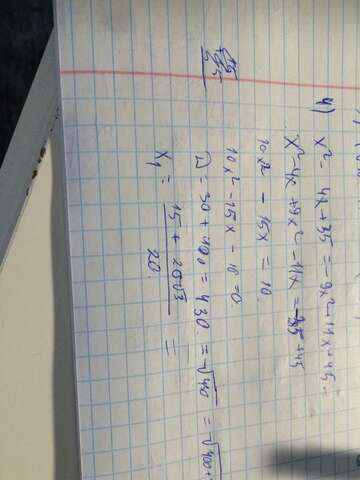 4) x² - 4x + 35 = -9x² - 11x + 45
x² - 4x + 9x² - 11x = -35 + 45
10x² - 15x = 10
10x² - 15x - 10 = 0
D = 30 + 400 = 430 = √430 = √400+
x₁ = (15 + 20√3) / 20 =